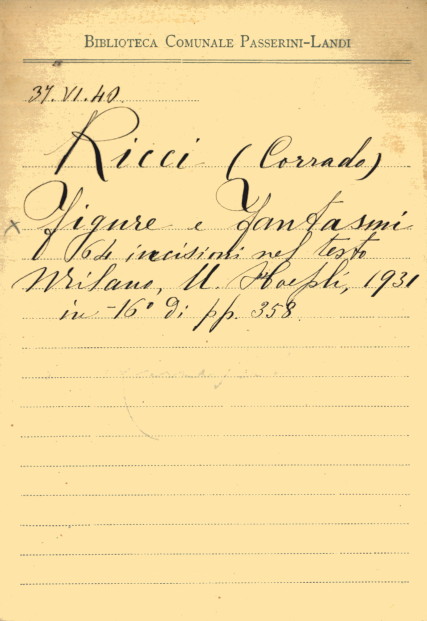 BIBLIOTECA COMUNALE PASSERINI-LANDI
37.VI.40
Ricci (Corrado)
x Figure e fantasmi
64 incisioni nel testo
Milano, U. Hoepli, 1931
in-16° di pp. 358